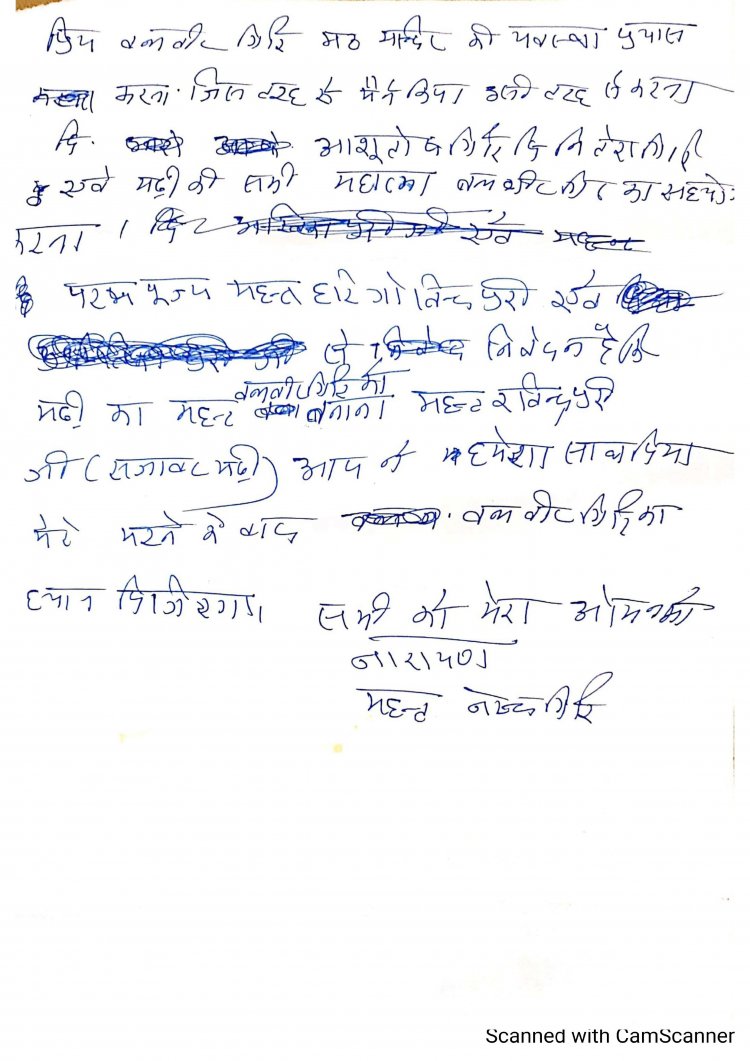 प्रिय बलवीर गिरि मठ मन्दिर की यवस्था प्रयास
करना. जिस तरह से मैंने किया इसी तरह से करना
प्रि. आशूतोष गिरि प्रि नितेश गिरि
एवं मढ़ी की सभी महात्मा बलवीर गिरि का सहयो
करना ।
परम पूज्य महन्त हरि गोविन्द पुरी एवं
से निवेदन है कि
बलवीर गिरि को
मढ़ी का महन्त बनाना महन्त रविन्द्र पुरी
जी (सजावट मढ़ी) आप ने हमेशा साथ दिया
मेरे मरने के बाद बलवीर गिरि का
ध्यान दिजिएगा। सभी को मेरा ओम नमो
नारायण
महन्त नरेन्द्र गिरि
Scanned with CamScanner